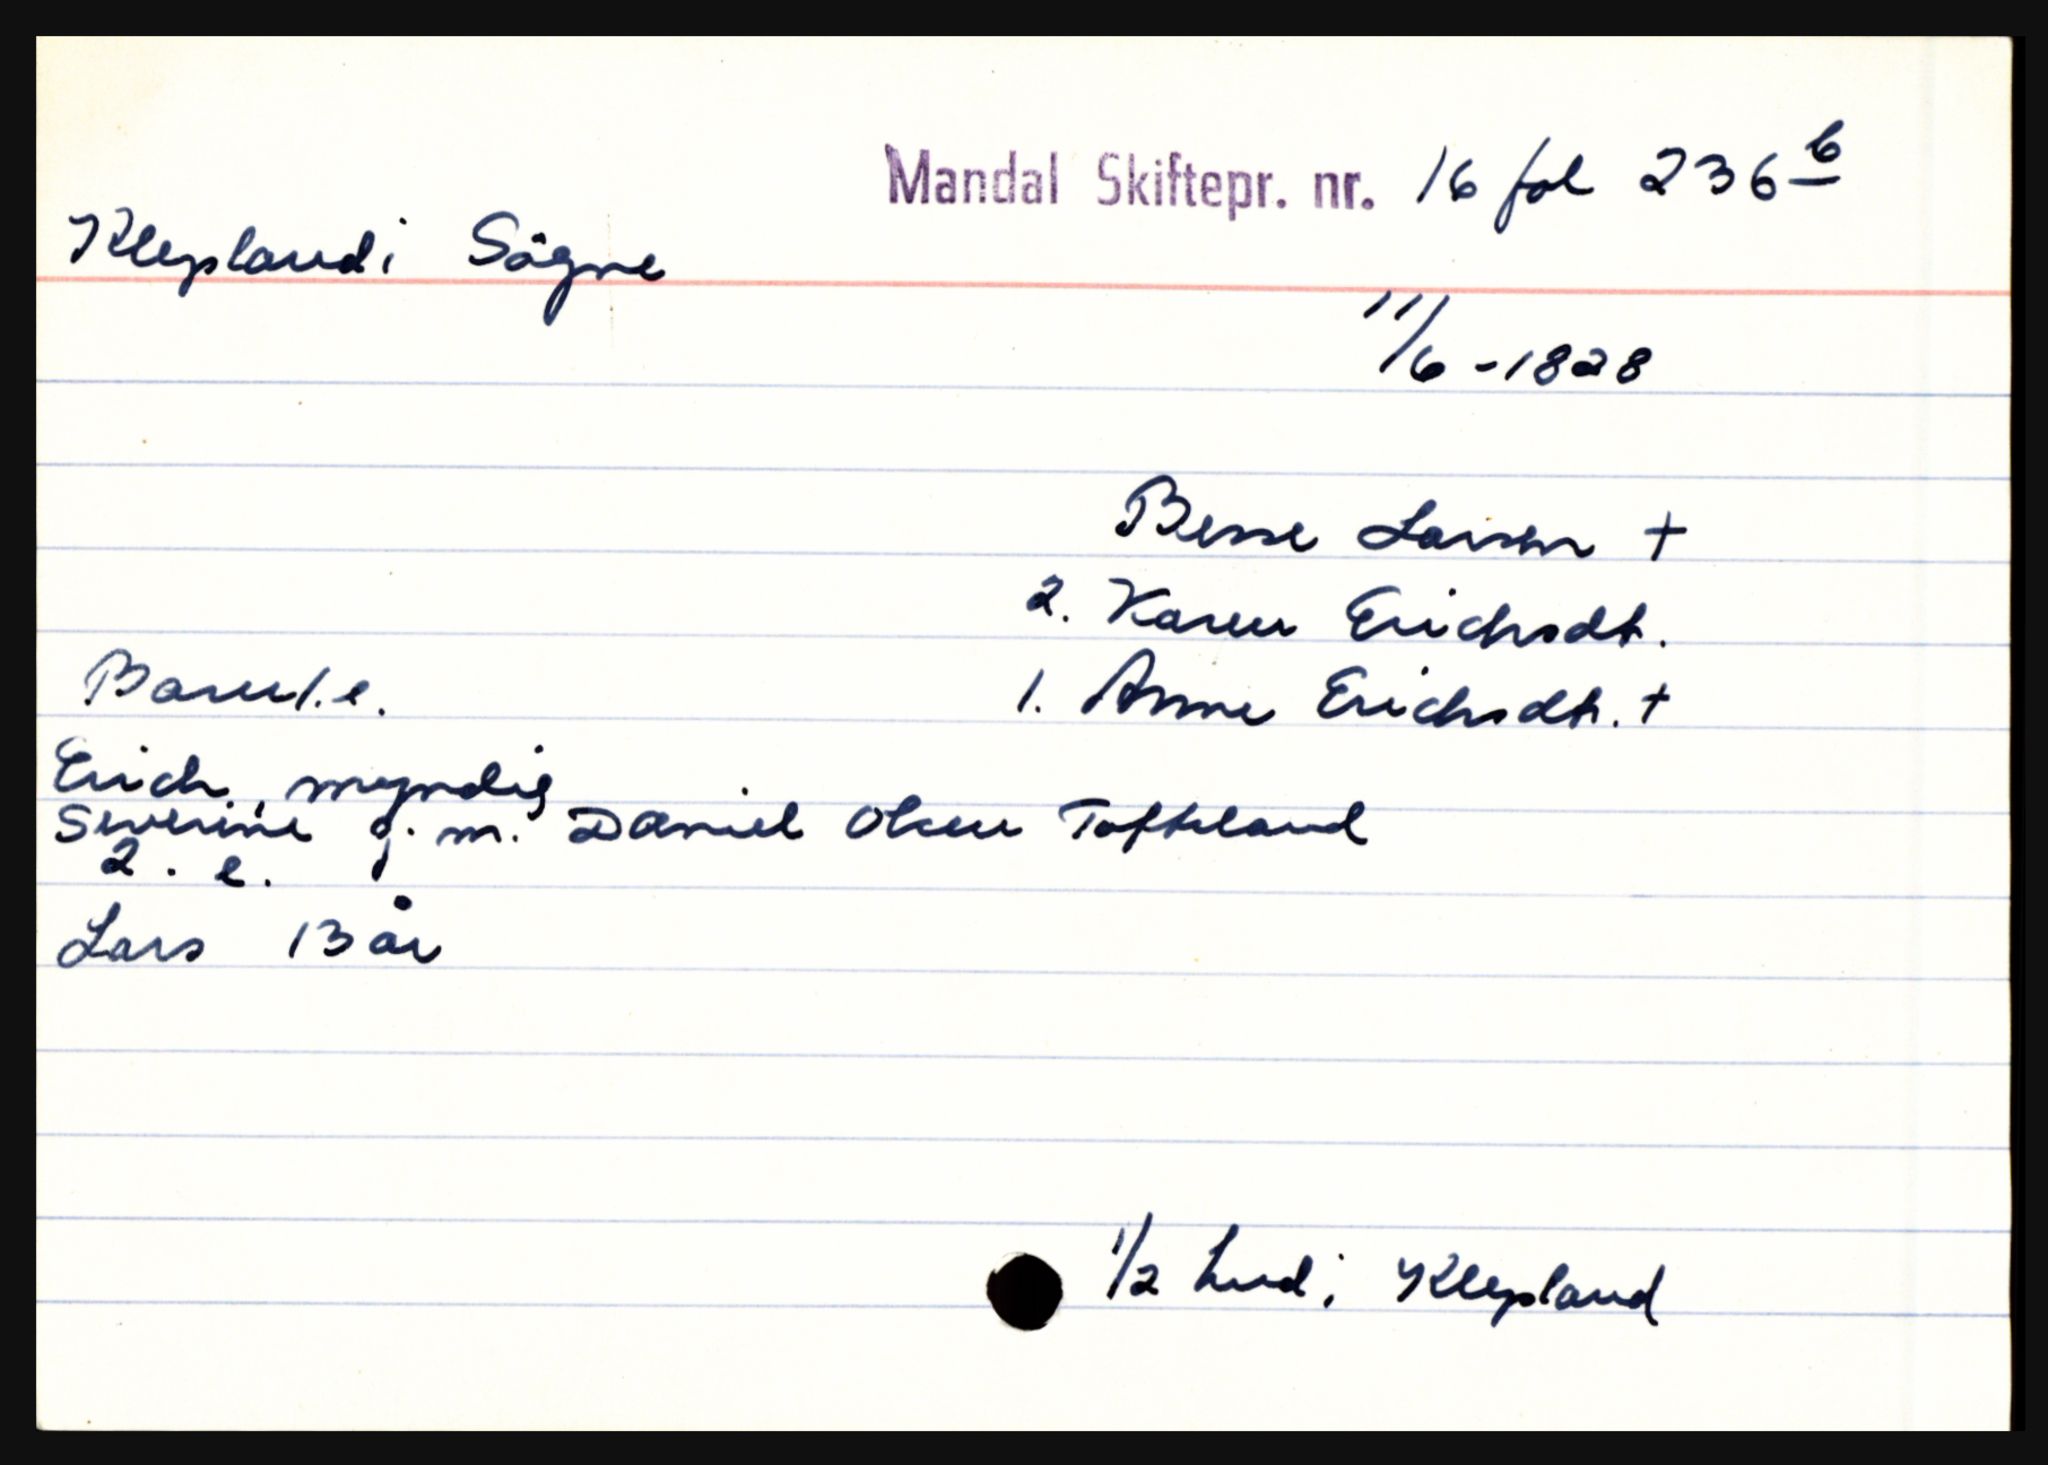 Mandal Skiftepr. nr. 16 fol 236 b
Klepland i Sögne
11/6 - 1828
Besse Larsen +
2. Karen Erichsdt.
Barn 1. e.
1. Anne Erichsdt. +
Erich myndig
Severine g. m. Daniel Olsen Tofteland
2. e.
Lars 13 år
1/2 hud i Klepland